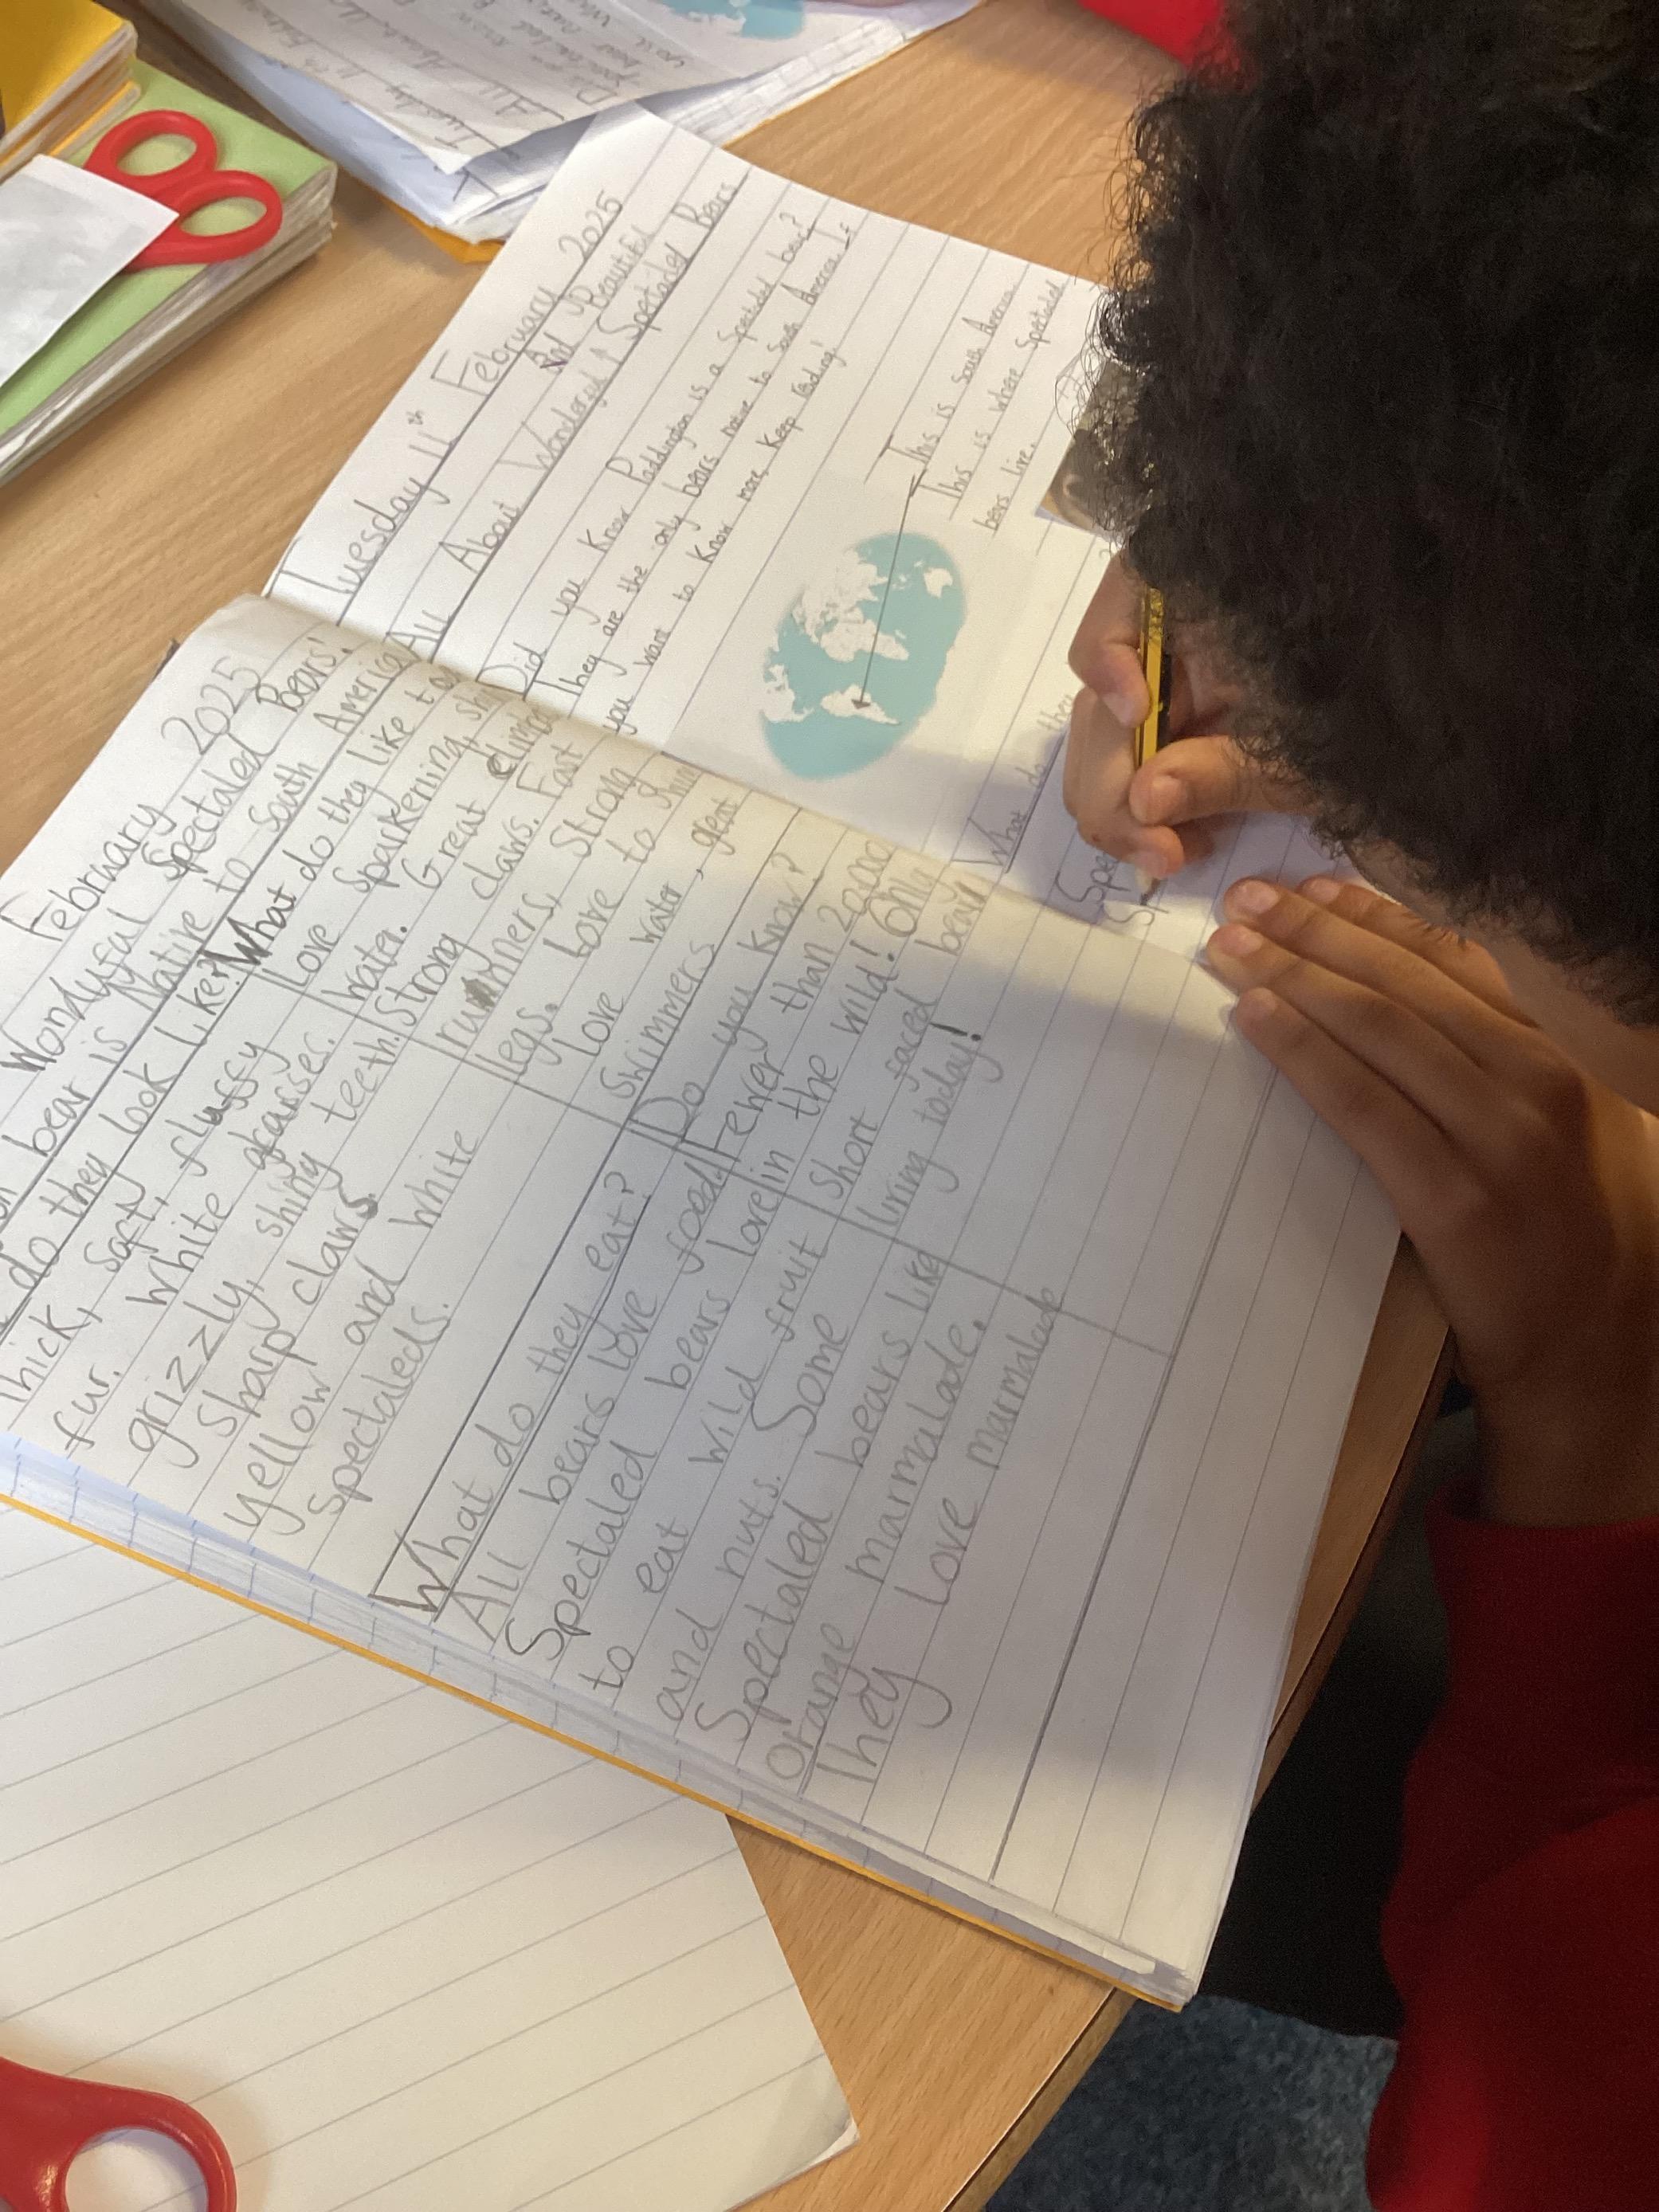 February 2025
Wondyful Spectaled Bears!
bear is Native to South America
do they look like?
thick, soft, fluffy
fur. White
grizzly, shiny teeth.
Sharp claws.
yellow and white
spectaleds.
What do they like to
Love sparkening, shi
water. Great climb
Strong claws. Fast
runners, Strong
legs. Love to swim
Love water, great
Swimmers.
What do they eat?
All bears love food.
Spectaled bears love
to eat wild fruit
and nuts. Some
Spectaled bears like
orange marmalade.
They love marmalade
Do you know?
Fewer than 20,000
in the wild! Only
short faced bear
living today!
Tuesday 11th February 2025
And so Beautiful
All About Wonderful ↑ Spectacled Bears
Did you know Paddington is a Spectacled bear?
They are the only bears native to South America. If
you want to know more, keep reading!
This is South America.
This is where Spectacled
bears live.
What do they
Spe
Sp